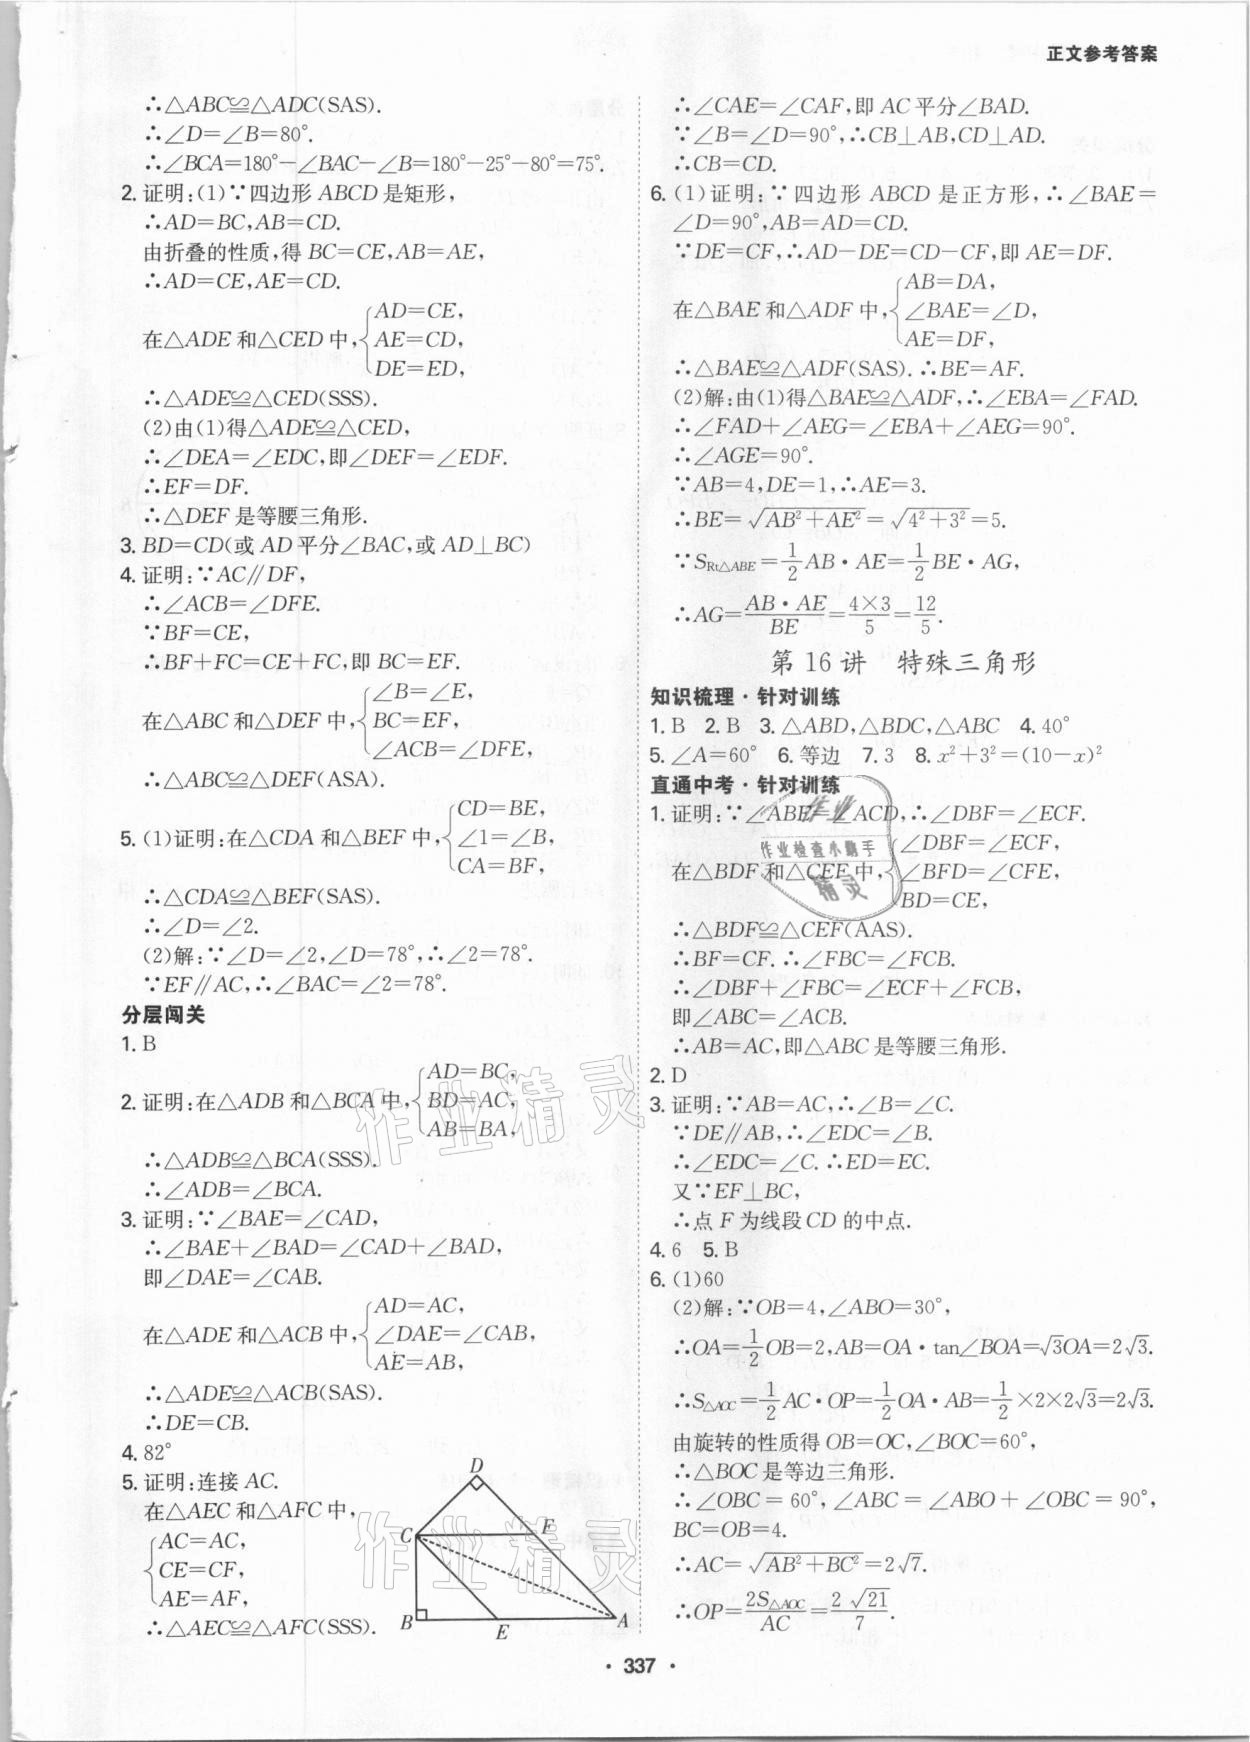 正文参考答案
∴△ABC≌△ADC(SAS).
∴∠D=∠B=80°.
∴∠BCA=180°-∠BAC-∠B=180°-25°-80°=75°.
2. 证明:(1)∵四边形 ABCD 是矩形,
∴AD=BC,AB=CD.
由折叠的性质,得 BC=CE,AB=AE,
∴AD=CE,AE=CD.
在△ADE 和△CED 中,{AD=CE,
AE=CD,
DE=ED,
∴△ADE≌△CED(SSS).
(2)由(1)得△ADE≌△CED,
∴∠DEA=∠EDC,即∠DEF=∠EDF.
∴EF=DF.
∴△DEF 是等腰三角形.
3. BD=CD(或 AD 平分∠BAC,或 AD⊥BC)
4. 证明:∵AC∥DF,
∴∠ACB=∠DFE.
∵BF=CE,
∴BF+FC=CE+FC,即 BC=EF.
在△ABC 和△DEF 中,{∠B=∠E,
BC=EF,
∠ACB=∠DFE,
∴△ABC≌△DEF(ASA).
5. (1)证明:在△CDA 和△BEF 中,{CD=BE,
∠1=∠B,
CA=BF,
∴△CDA≌△BEF(SAS).
∴∠D=∠2.
(2)解:∵∠D=∠2,∠D=78°,∴∠2=78°.
∵EF∥AC,∴∠BAC=∠2=78°.
分层闯关
1. B
2. 证明:在△ADB 和△BCA 中,{AD=BC,
BD=AC,
AB=BA,
∴△ADB≌△BCA(SSS).
∴∠ADB=∠BCA.
3. 证明:∵∠BAE=∠CAD,
∴∠BAE+∠BAD=∠CAD+∠BAD,
即∠DAE=∠CAB.
在△ADE 和△ACB 中,{AD=AC,
∠DAE=∠CAB,
AE=AB,
∴△ADE≌△ACB(SAS).
∴DE=CB.
4. 82°
5. 证明:连接 AC.
在△AEC 和△AFC 中,
{AC=AC,
CE=CF,
AE=AF,
∴△AEC≌△AFC(SSS).
D
C
F
B
E
A
∴∠CAE=∠CAF,即 AC 平分∠BAD.
∵∠B=∠D=90°,∴CB⊥AB,CD⊥AD.
∴CB=CD.
6. (1)证明:∵四边形 ABCD 是正方形,∴∠BAE=
∠D=90°,AB=AD=CD.
∵DE=CF,∴AD-DE=CD-CF,即 AE=DF.
在△BAE 和△ADF 中,{AB=DA,
∠BAE=∠D,
AE=DF,
∴△BAE≌△ADF(SAS).∴BE=AF.
(2)解:由(1)得△BAE≌△ADF,∴∠EBA=∠FAD.
∴∠FAD+∠AEG=∠EBA+∠AEG=90°.
∴∠AGE=90°.
∵AB=4,DE=1,∴AE=3.
∴BE=√(AB²+AE²)=√(4²+3²)=5.
∵S_{Rt△ABE}=1/2 AB·AE=1/2 BE·AG,
∴AG=AB·AE/BE=4×3/5=12/5.
第 16 讲 特殊三角形
知识梳理·针对训练
1. B 2. B 3. △ABD,△BDC,△ABC 4. 40°
5. ∠A=60° 6. 等边 7. 3 8. x²+3²=(10-x)²
直通中考·针对训练
1. 证明:∵∠ABE=∠ACD,∴∠DBF=∠ECF.
在△BDF 和△CEF 中,{∠DBF=∠ECF,
∠BFD=∠CFE,
BD=CE,
∴△BDF≌△CEF(AAS).
∴BF=CF.∴∠FBC=∠FCB.
∴∠DBF+∠FBC=∠ECF+∠FCB,
即∠ABC=∠ACB.
∴AB=AC,即△ABC 是等腰三角形.
2. D
3. 证明:∵AB=AC,∴∠B=∠C.
∵DE∥AB,∴∠EDC=∠B.
∴∠EDC=∠C.∴ED=EC.
又∵EF⊥BC,
∴点 F 为线段 CD 的中点.
4. 6 5. B
6. (1)60
(2)解:∵OB=4,∠ABO=30°,
∴OA=1/2 OB=2,AB=OA·tan∠BOA=√3OA=2√3.
∴S_{△AOC}=1/2 AC·OP=1/2 OA·AB=1/2×2×2√3=2√3.
由旋转的性质得 OB=OC,∠BOC=60°,
∴△BOC 是等边三角形.
∴∠OBC=60°,∠ABC=∠ABO+∠OBC=90°,
BC=OB=4.
∴AC=√(AB²+BC²)=2√7.
∴OP=2S_{△AOC}/AC=2√21/7.
作业
作业检查小助手
精灵
作业精灵
作业精灵
· 337 ·